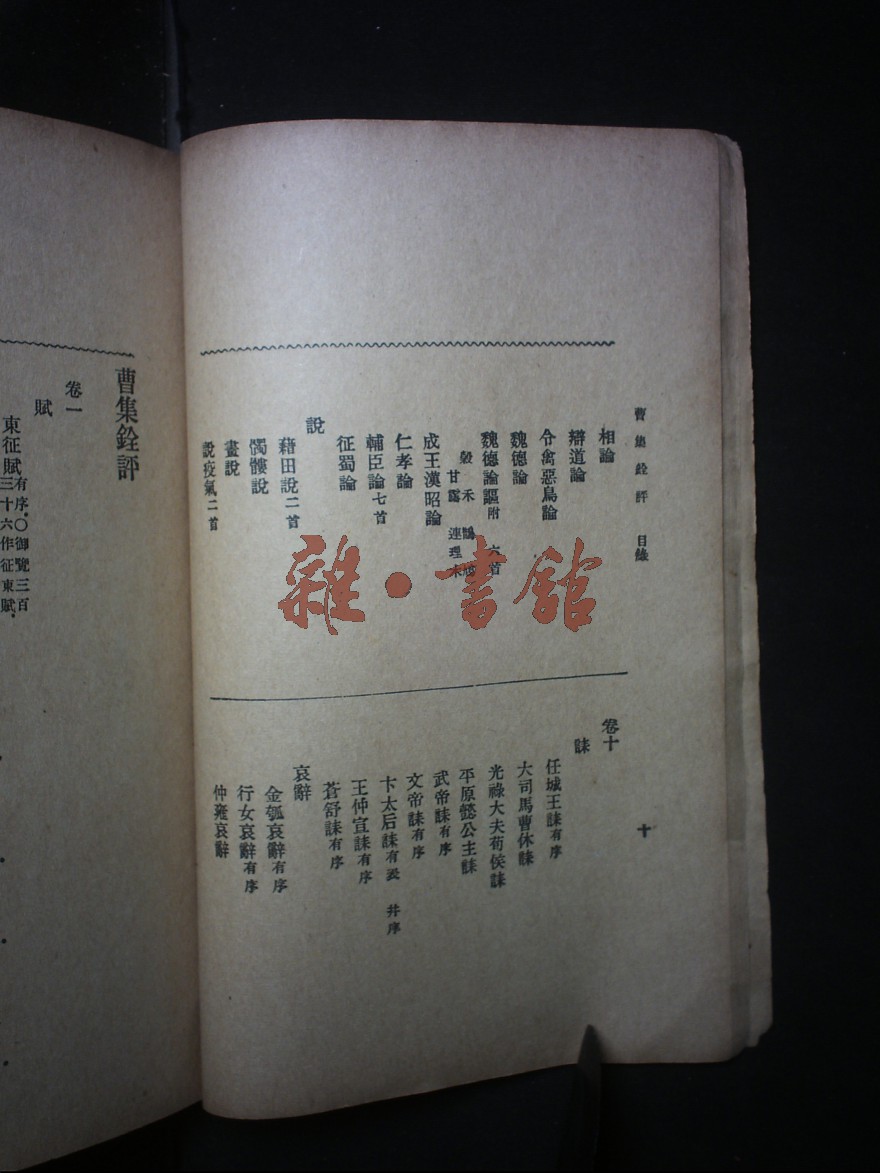 曹集銓評 目錄
十
相論
辯道論
令禽惡鳥論
魏德論
魏德論謳附 六首
穀 禾 鵲 鳩
甘露 連理木
成王漢昭論
仁孝論
輔臣論七首
征蜀論
說
藉田說二首
髑髏說
畫說
說疫氣二首
卷十
誄
任城王誄有序
大司馬曹休誄
光祿大夫荀侯誄
平原懿公主誄
武帝誄有序
文帝誄有序
卞太后誄有表 并序
王仲宣誄有序
蒼舒誄有序
哀辭
金瓠哀辭有序
行女哀辭有序
仲雍哀辭
雜·書館
曹集銓評
卷一
賦
東征賦有序.〇御覽三百
三十六作征東賦.